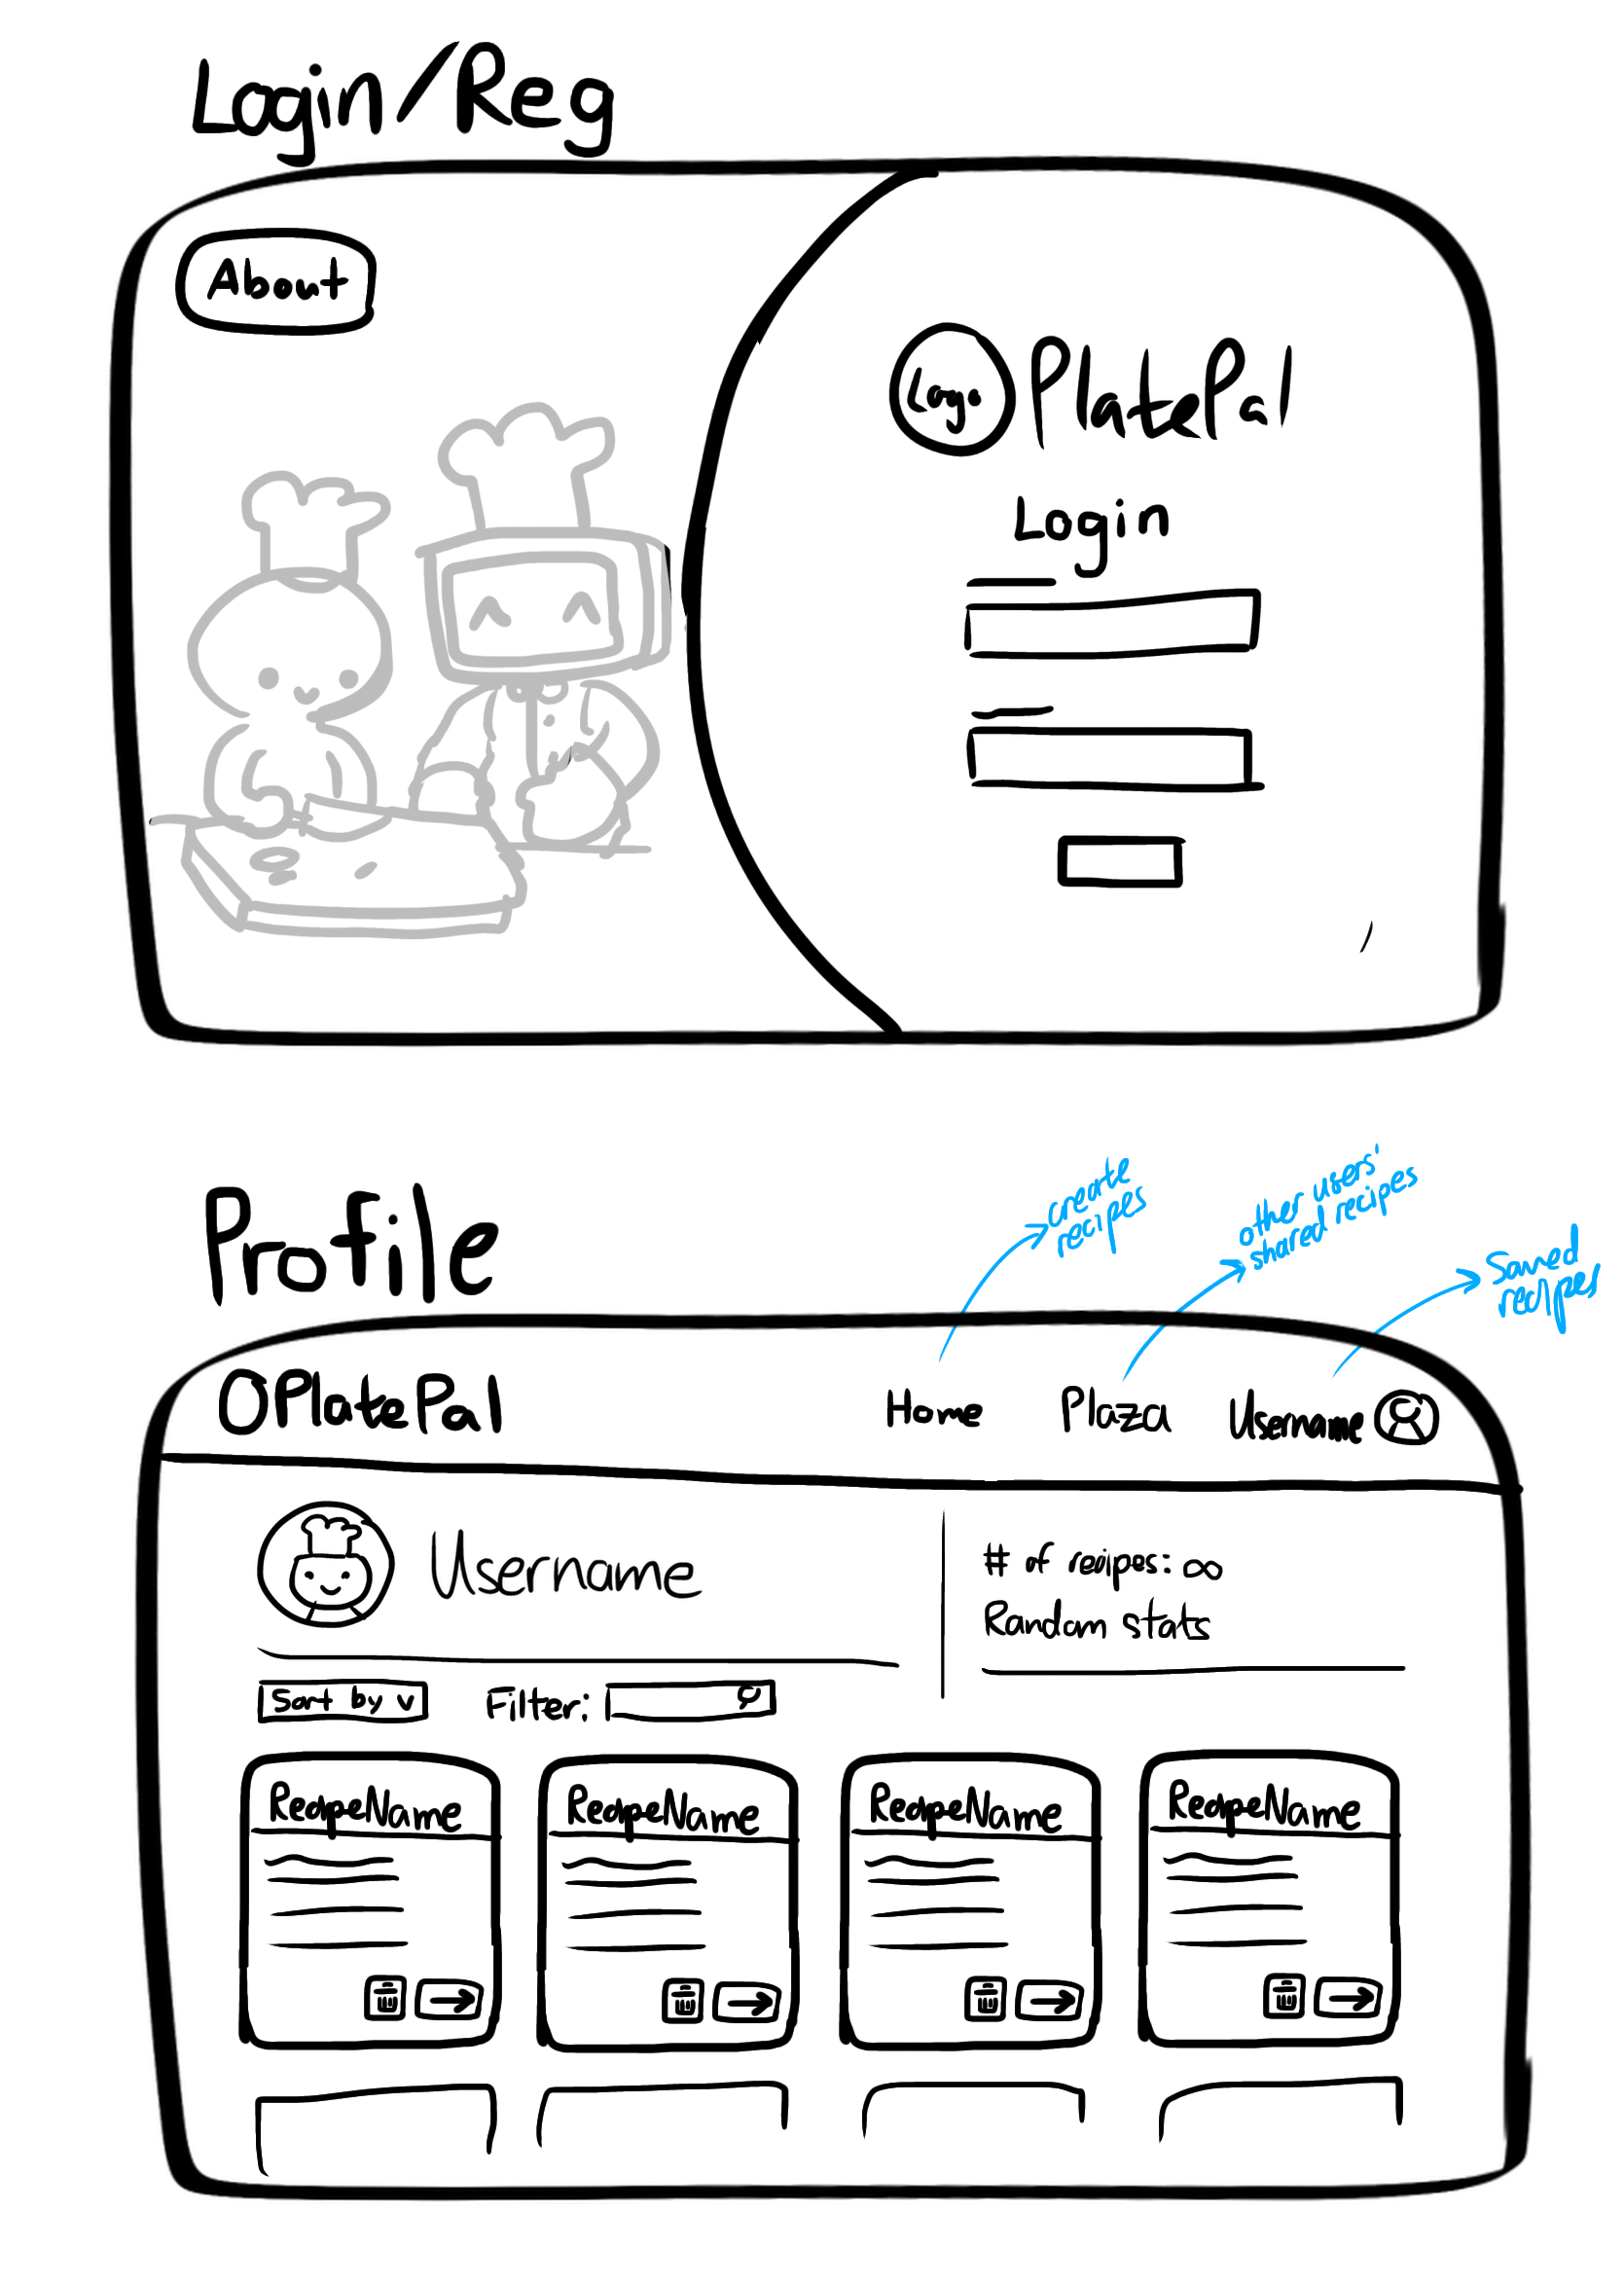 Login/Reg
About
Logo PlatePal
Login
create
recipes
other users'
shared recipes
Saved
recipes
Profile
OPlatePal Home Plaza Username
Username
# of recipes: ∞
Random stats
Sort by v Filter:
RecipeName RecipeName RecipeName RecipeName